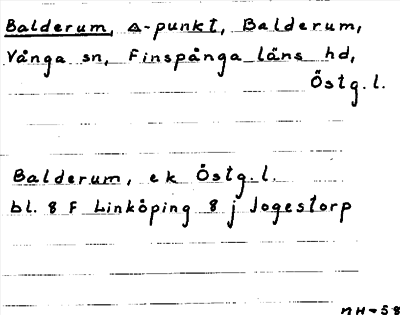 Balderum, △-punkt, Balderum,
Vånga sn, Finspånga läns hd,
Östg.l.
Balderum, ek Östg.l.
bl. 8 F Linköping 8 j Jogestorp
MH-58